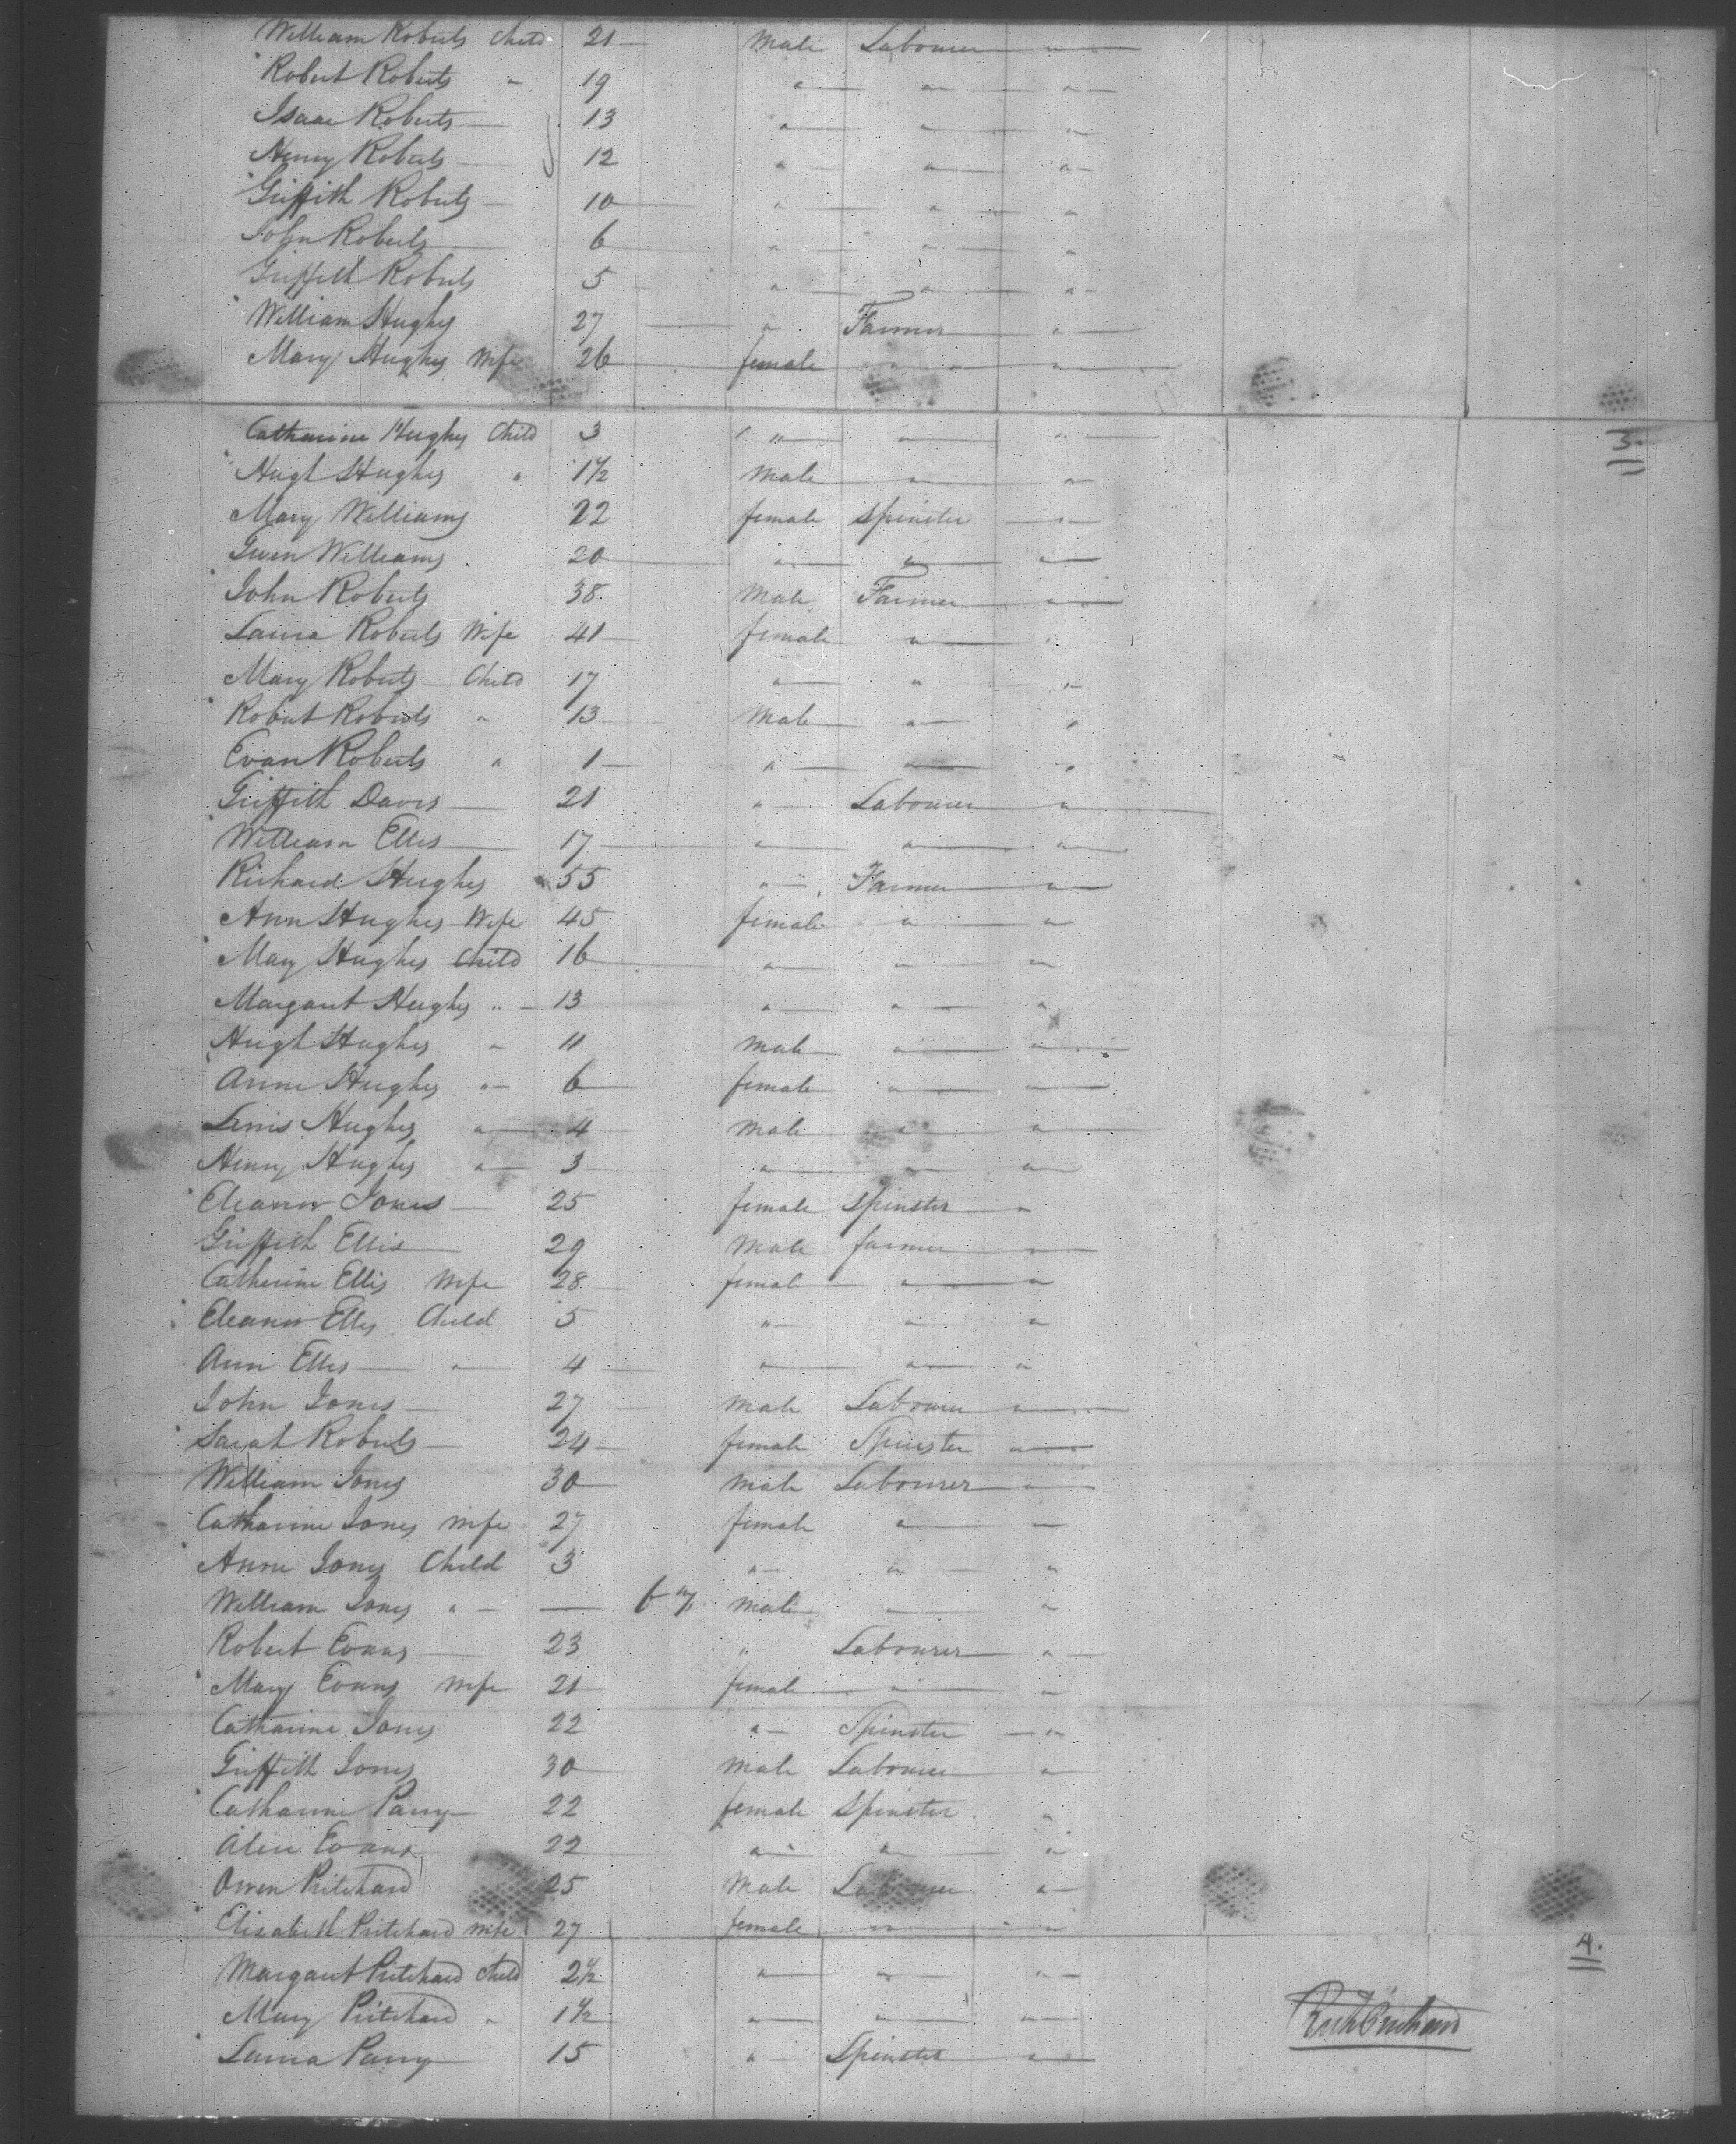 William Roberts Child 21 — male Labourer — " —
Robert Roberts " 19 " — " — " —
Isaac Roberts — 13 " — " — "
Henry Roberts — 12 " — " — " —
Griffith Roberts — 10 — " — " — "
John Roberts — 6 — " — " — "
Griffith Roberts 5 — " — " — " —
William Hughes 27 — " Farmer — " —
Mary Hughes Wife 26 — female " — " —
Catharine Hughes Child 3 " — " — " — 3.
Hugh Hughes " 1½ male — " — "
Mary Williams 22 female Spinster — " —
Gwen Williams 20 — " — " — " —
John Roberts 38 Male Farmer — " —
Laura Roberts Wife 41 — female " — "
Mary Roberts — Child 17 " — " — "
Robert Roberts " 13 — male — " — "
Evan Roberts " 1 — " — " — "
Griffith Davis — 21 " — Labourer — " —
William Ellis — 17 — " — " — " —
Richard Hughes 55 " — Farmer — " —
Ann Hughes Wife 45 female " — "
Mary Hughes Child 16 — " — " — "
Margaret Hughes " — 13 " — " — "
Hugh Hughes " 11 male — " — " —
Anne Hughes " — 6 — female " — " —
Lewis Hughes " — 4 male — " — " —
Henry Hughes " — 3 — " — " — " —
Eleanor Jones — 25 female Spinster — "
Griffith Ellis — 29 Male farmer — " —
Catherine Ellis Wife 28 — female — " — "
Eleanor Ellis Child 5 " — " — "
Ann Ellis — " 4 — " — " — "
John Jones — 27 male Labourer — " —
Sarah Roberts — 24 — female Spinster " —
William Jones 30 — male Labourer — " —
Catharine Jones Wife 27 female " — "
Anne Jones Child 3 " — " — "
William Jones " — — 6 m male — " — "
Robert Evans — 23 " Labourer — " —
Mary Evans Wife 21 female — " — "
Catharine Jones 22 " — Spinster — "
Griffith Jones 30 — male Labourer — "
Catharine Parry — 22 female Spinster "
Alice Evans 22 " — " — "
Owen Pritchard 25 Male Labourer " —
Elizabeth Pritchard Wife 27 female " — "
Margaret Pritchard Child 2½ " — " — " — 4.
Mary Pritchard " 1½ " — " — " —
Laura Parry — 15 " — Spinster — " —